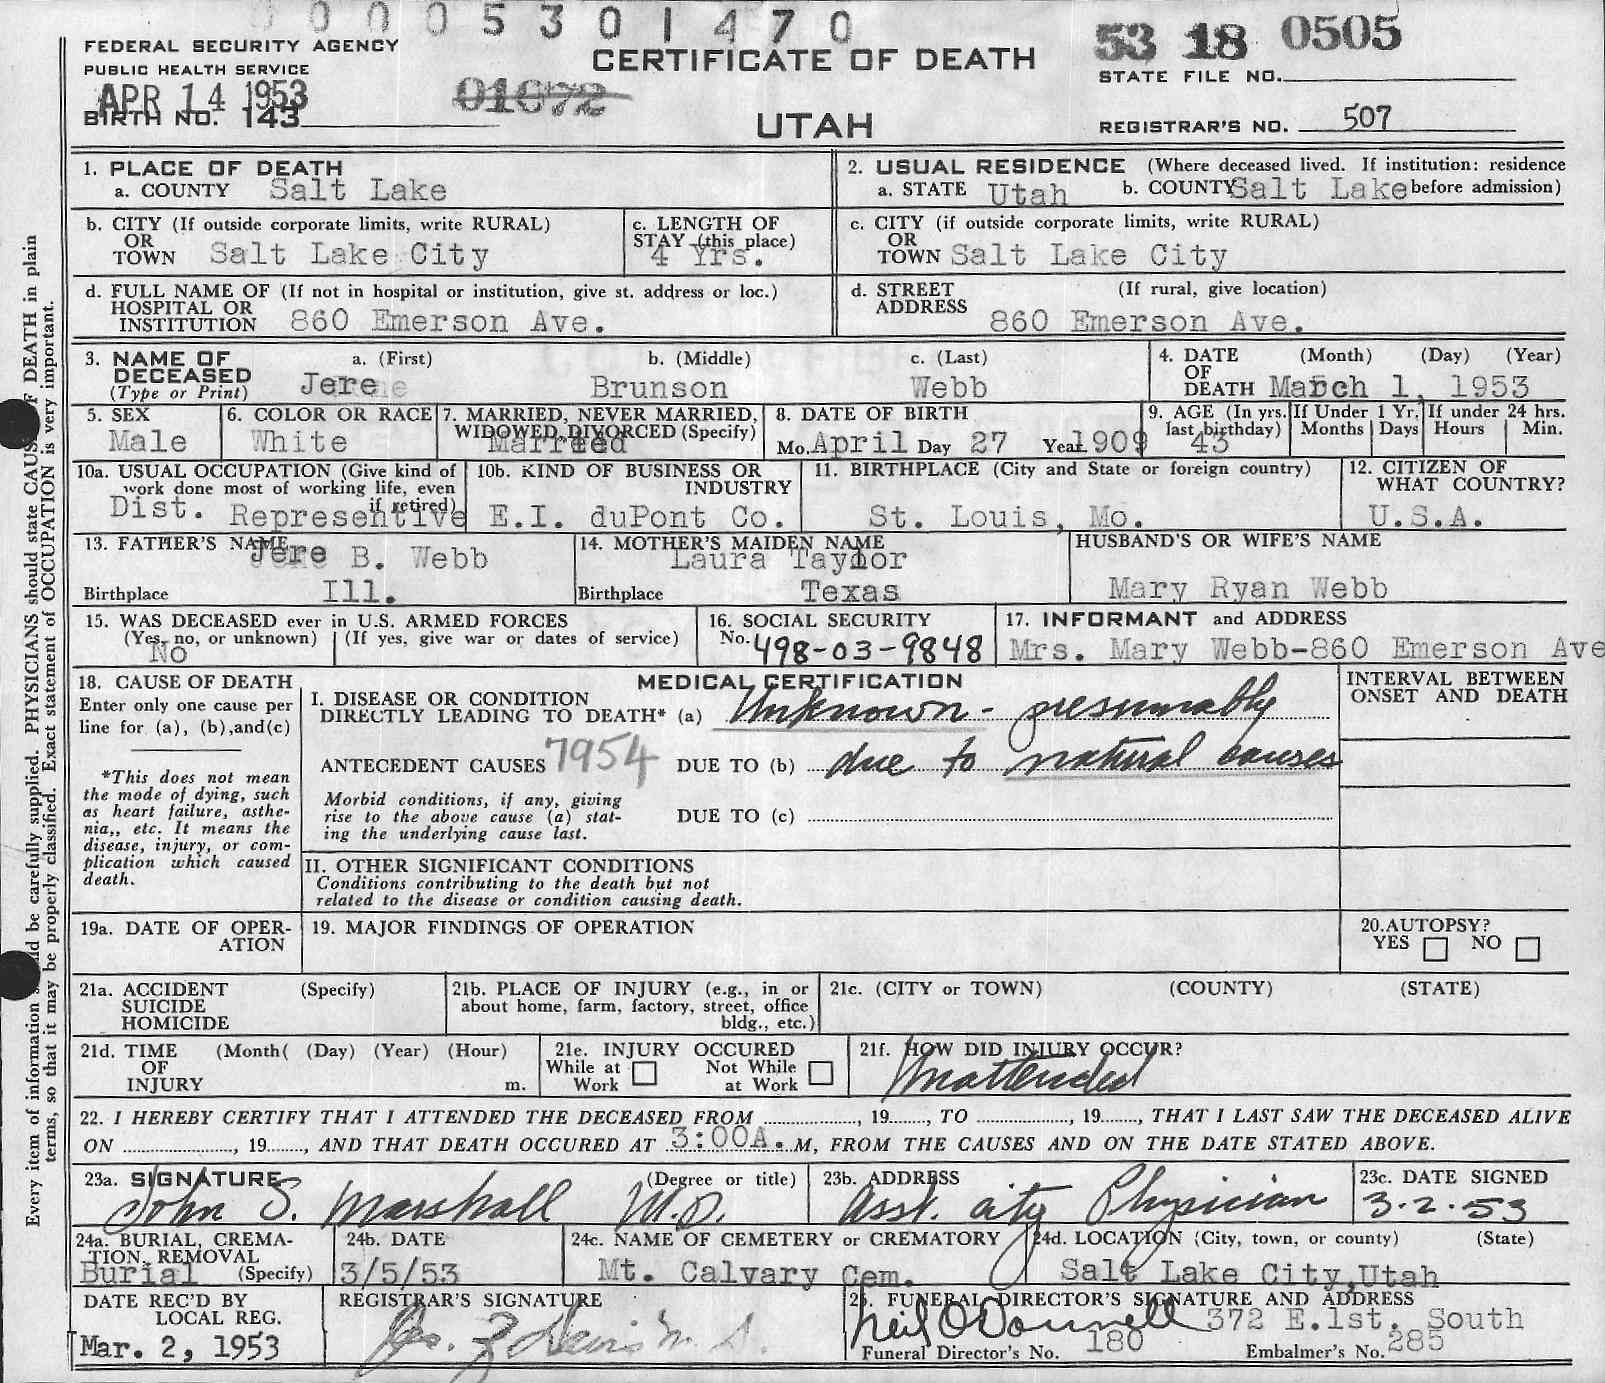 0 0 0 0 5 3 0 1 4 7 0
FEDERAL SECURITY AGENCY
PUBLIC HEALTH SERVICE
APR 14 1953
BIRTH NO. 143
01672
CERTIFICATE OF DEATH
UTAH
53 18 0505
STATE FILE NO.
REGISTRAR'S NO. 507
1. PLACE OF DEATH
a. COUNTY Salt Lake
2. USUAL RESIDENCE (Where deceased lived. If institution: residence
a. STATE Utah b. COUNTY Salt Lake before admission)
b. CITY (If outside corporate limits, write RURAL)
OR
TOWN Salt Lake City
c. LENGTH OF
STAY (this place)
4 Yrs.
c. CITY (if outside corporate limits, write RURAL)
OR
TOWN Salt Lake City
d. FULL NAME OF (If not in hospital or institution, give st. address or loc.)
HOSPITAL OR
INSTITUTION 860 Emerson Ave.
d. STREET (If rural, give location)
ADDRESS
860 Emerson Ave.
3. NAME OF DECEASED (Type or Print)
a. (First) b. (Middle) c. (Last)
Jere Brunson Webb
4. DATE OF DEATH (Month) (Day) (Year)
March 1, 1953
5. SEX
Male
6. COLOR OR RACE
White
7. MARRIED, NEVER MARRIED,
WIDOWED, DIVORCED (Specify)
Married
8. DATE OF BIRTH
Mo. April Day 27 Year 1909
9. AGE (In yrs. last birthday)
43
If Under 1 Yr.
Months Days
If under 24 hrs.
Hours Min.
10a. USUAL OCCUPATION (Give kind of
work done most of working life, even
if retired)
Dist. Representive
10b. KIND OF BUSINESS OR
INDUSTRY
E.I. duPont Co.
11. BIRTHPLACE (City and State or foreign country)
St. Louis, Mo.
12. CITIZEN OF
WHAT COUNTRY?
U.S.A.
13. FATHER'S NAME
Jere B. Webb
Birthplace Ill.
14. MOTHER'S MAIDEN NAME
Laura Taylor
Birthplace Texas
HUSBAND'S OR WIFE'S NAME
Mary Ryan Webb
15. WAS DECEASED ever in U.S. ARMED FORCES
(Yes, no, or unknown) (If yes, give war or dates of service)
No
16. SOCIAL SECURITY
No. 498-03-9848
17. INFORMANT and ADDRESS
Mrs. Mary Webb-860 Emerson Ave
18. CAUSE OF DEATH
Enter only one cause per
line for (a), (b), and (c)
*This does not mean
the mode of dying, such
as heart failure, asthe-
nia,, etc. It means the
disease, injury, or com-
plication which caused
death.
MEDICAL CERTIFICATION
I. DISEASE OR CONDITION
DIRECTLY LEADING TO DEATH* (a) Unknown - presumably
ANTECEDENT CAUSES 7954 DUE TO (b) due to natural causes
Morbid conditions, if any, giving
rise to the above cause (a) stat-
ing the underlying cause last.
DUE TO (c)
II. OTHER SIGNIFICANT CONDITIONS
Conditions contributing to the death but not
related to the disease or condition causing death.
INTERVAL BETWEEN
ONSET AND DEATH
19a. DATE OF OPER-
ATION
19. MAJOR FINDINGS OF OPERATION
20. AUTOPSY?
YES NO
21a. ACCIDENT (Specify)
SUICIDE
HOMICIDE
21b. PLACE OF INJURY (e.g., in or
about home, farm, factory, street, office
bldg., etc.)
21c. (CITY or TOWN) (COUNTY) (STATE)
21d. TIME (Month( (Day) (Year) (Hour)
OF
INJURY m.
21e. INJURY OCCURED
While at Work Not While at Work
21f. HOW DID INJURY OCCUR?
Unattended
22. I HEREBY CERTIFY THAT I ATTENDED THE DECEASED FROM ........, 19......, TO ........, 19......, THAT I LAST SAW THE DECEASED ALIVE
ON ........, 19......, AND THAT DEATH OCCURED AT 3:00A.M, FROM THE CAUSES AND ON THE DATE STATED ABOVE.
23a. SIGNATURE (Degree or title)
John S. Marshall M.D.
23b. ADDRESS
Asst. city Physician
23c. DATE SIGNED
3-2-53
24a. BURIAL, CREMA-
TION, REMOVAL
Burial (Specify)
24b. DATE
3/5/53
24c. NAME OF CEMETERY or CREMATORY
Mt. Calvary Cem.
24d. LOCATION (City, town, or county) (State)
Salt Lake City, Utah
DATE REC'D BY
LOCAL REG.
Mar. 2, 1953
REGISTRAR'S SIGNATURE
25. FUNERAL DIRECTOR'S SIGNATURE AND ADDRESS
Neil O'Donnell 372 E.1st. South
Funeral Director's No. 180 Embalmer's No. 285
Every item of information be carefully supplied. PHYSICIANS should state CAUSE OF DEATH in plain
terms, so that it may be properly classified. Exact statement of OCCUPATION is very important.